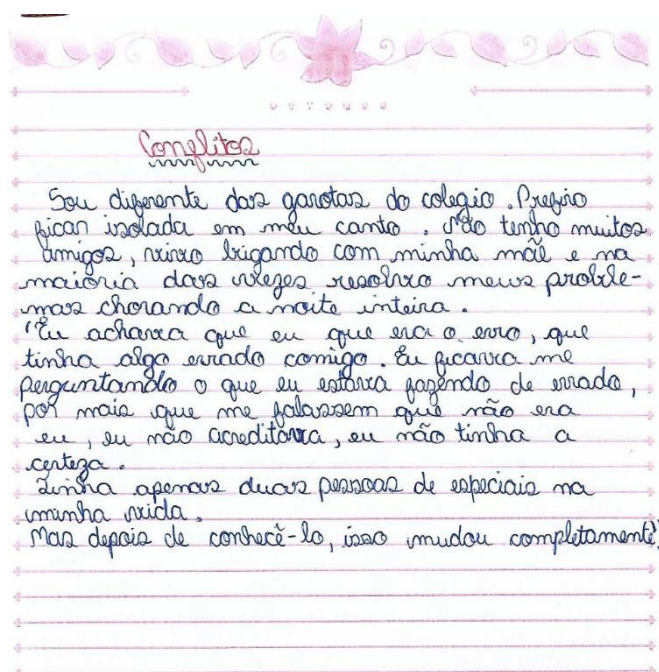 Conflitos
Sou diferente das garotas do colegio. Prefiro
ficar isolada em meu canto. Não tenho muitos
amigos, vivo brigando com minha mãe e na
maioria das vezes resolvo meus proble-
mas chorando a noite inteira.
"Eu achava que eu que era o erro, que
tinha algo errado comigo. Eu ficava me
perguntando o que eu estava fazendo de errado,
por mais que me falassem que não era
eu, eu não acreditava, eu não tinha a
certeza.
Tinha apenas duas pessoas de especiais na
minha vida.
Mas depois de conhecê-lo, isso mudou completamente".